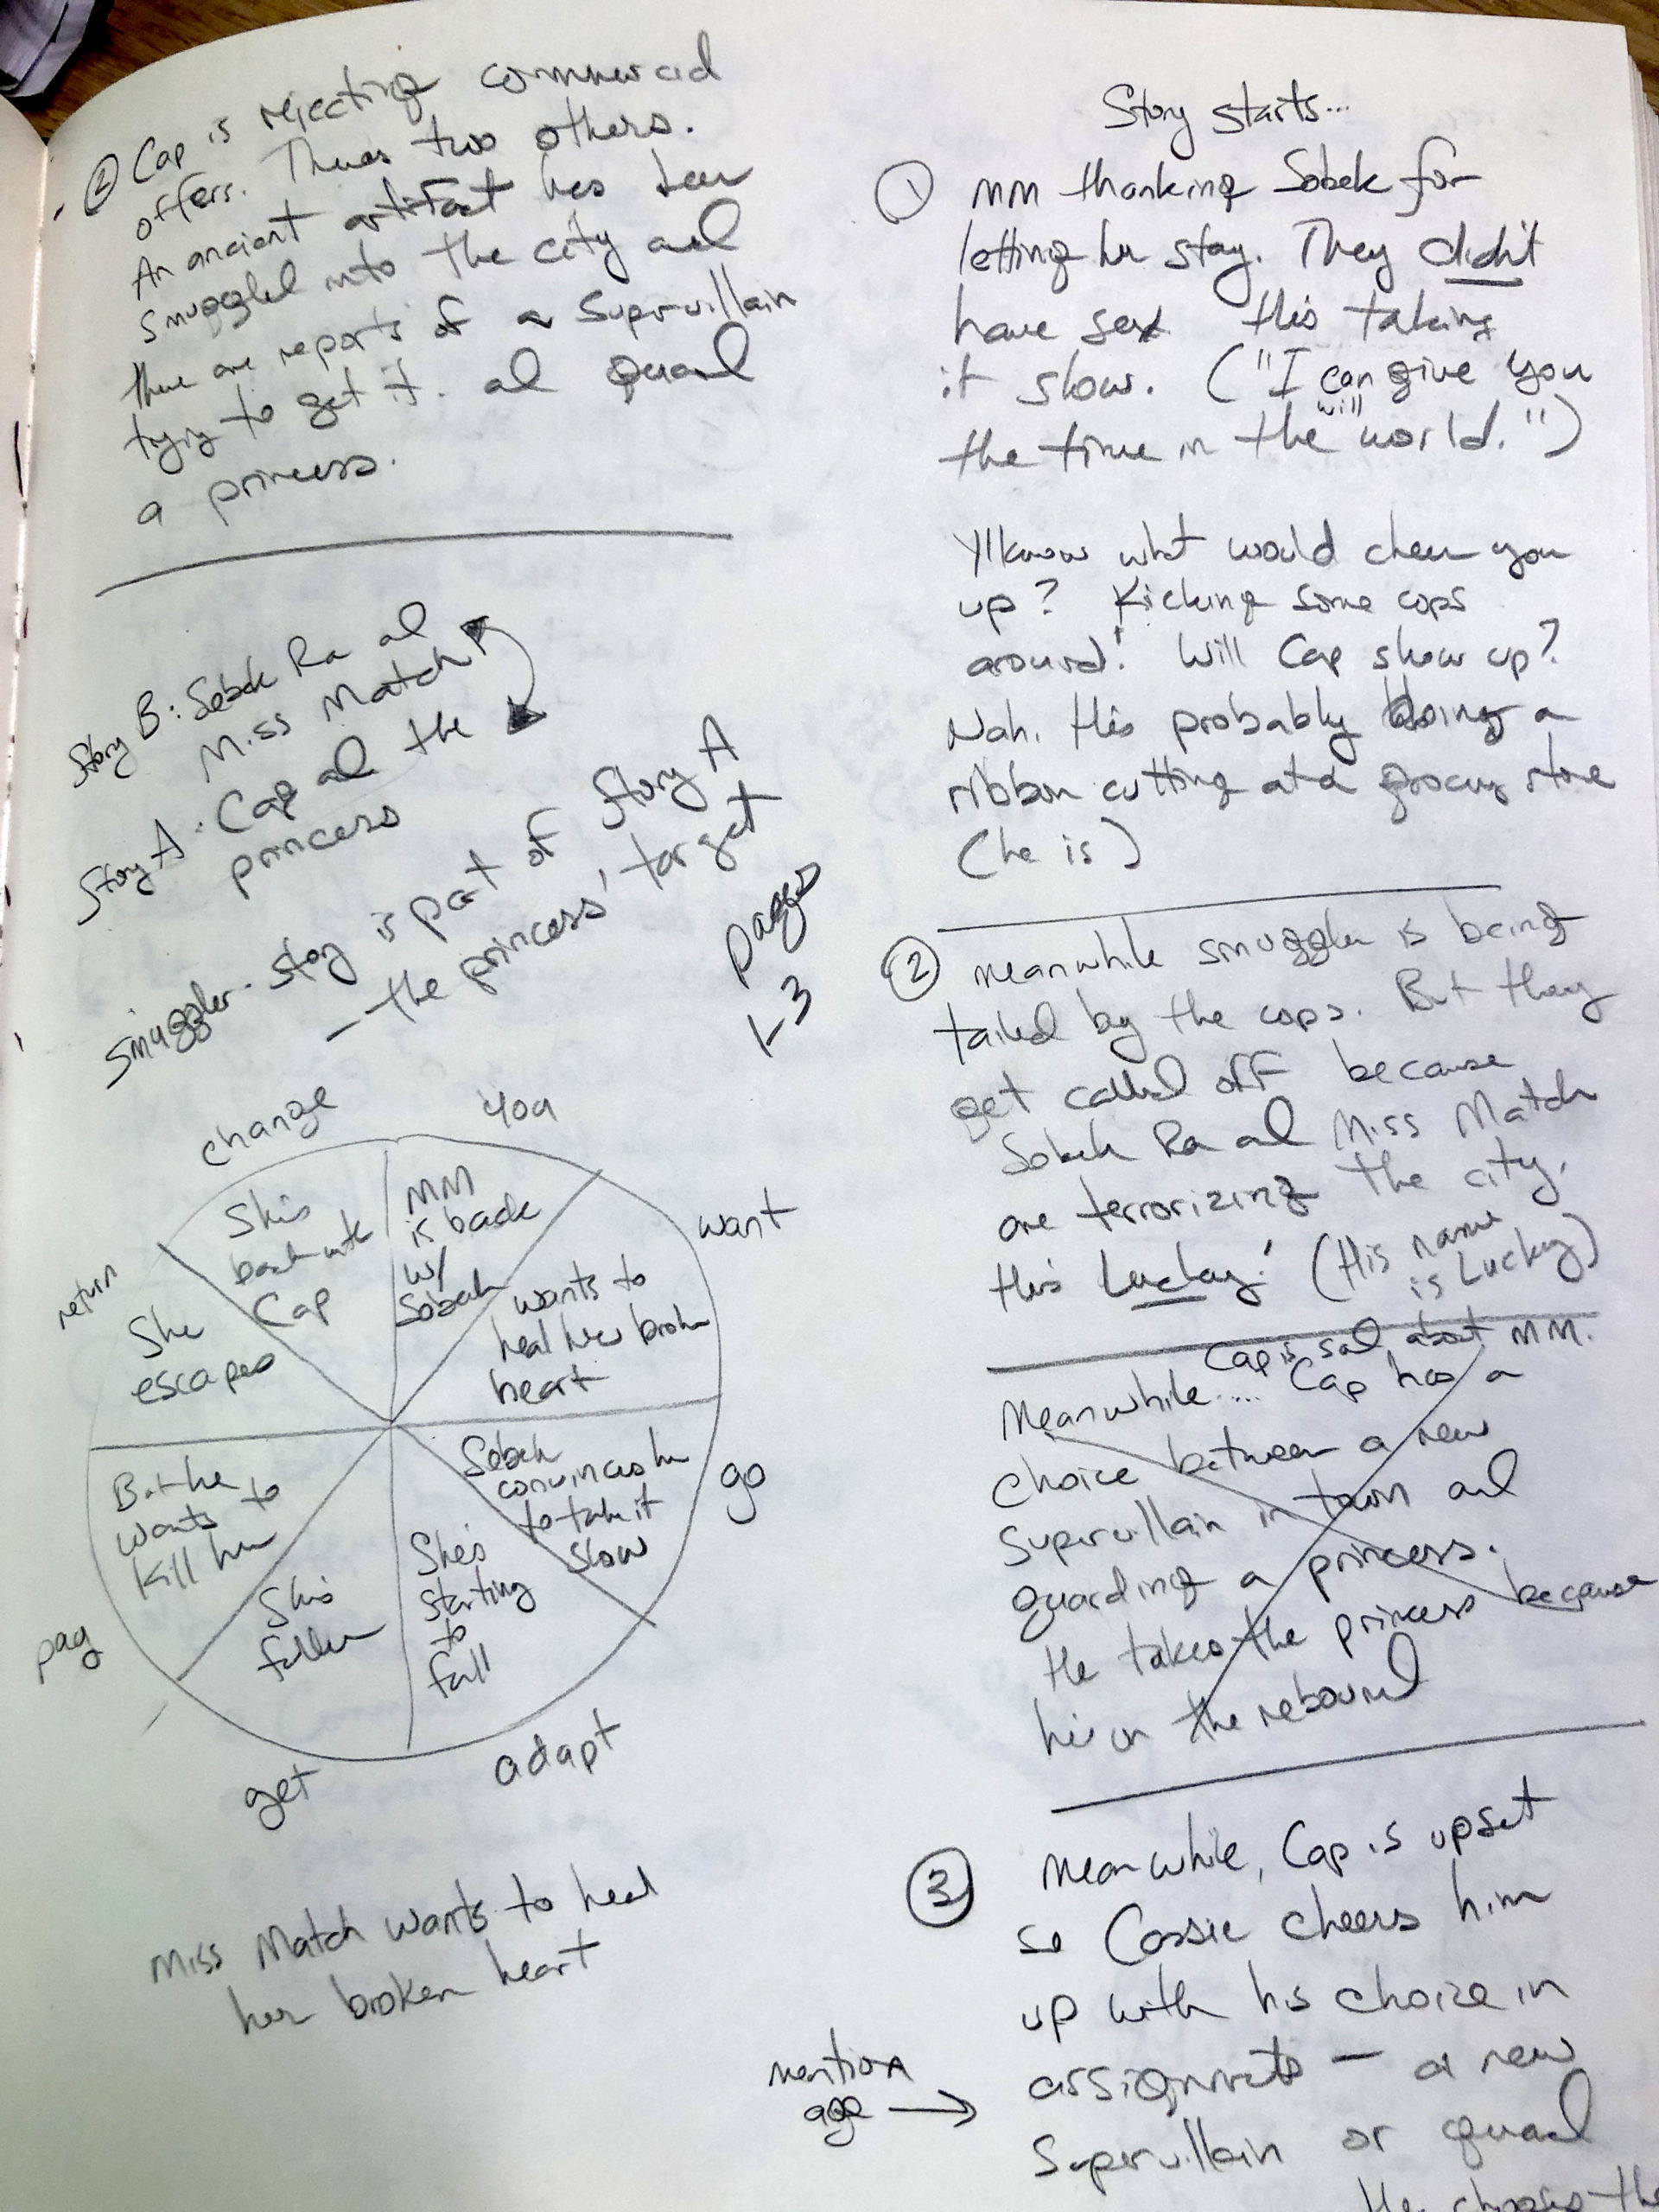 ② Cap is rejecting commercial
offers. Theres two others.
An ancient artifact has been
smuggled into the city and
there are reports of a supervillain
trying to get it. and guard
a princess.
Story B: Sobek Ra and
Miss Match
Story A: Cap and the
princess
smuggler story is part of Story A
— the princess' target
pages
1-3
change
you
want
go
adapt
get
pay
return
She's
back with
Cap
MM
is back
w/
Sobek
wants to
heal her broken
heart
Sobek
convinces her
to take it
slow
She's
starting
to
fall
She's
fallen
But he
wants to
kill her
She
escapes
Miss Match wants to heal
her broken heart
Story starts...
① MM thanking Sobek for
letting her stay. They didn't
have sex this taking
it slow. ("I can give you
will
the time in the world.")
Y'know what would cheer you
up? Kicking some cops
around! Will Cap show up?
Nah. He's probably doing a
ribbon cutting at a grocery store
(he is)
② Meanwhile smuggler is being
tailed by the cops. But they
get called off because
Sobek Ra and Miss Match
are terrorizing the city.
He's Lucky! (His name
is Lucky)
Cap is sad about MM.
Meanwhile.... Cap has a
choice between a new
supervillain in town and
guarding a princess.
He takes the princess because
he's on the rebound
③ Meanwhile, Cap is upset
so Cassie cheers him
up with his choice in
mention
age →
assignments — a new
supervillain or guard
He chooses the